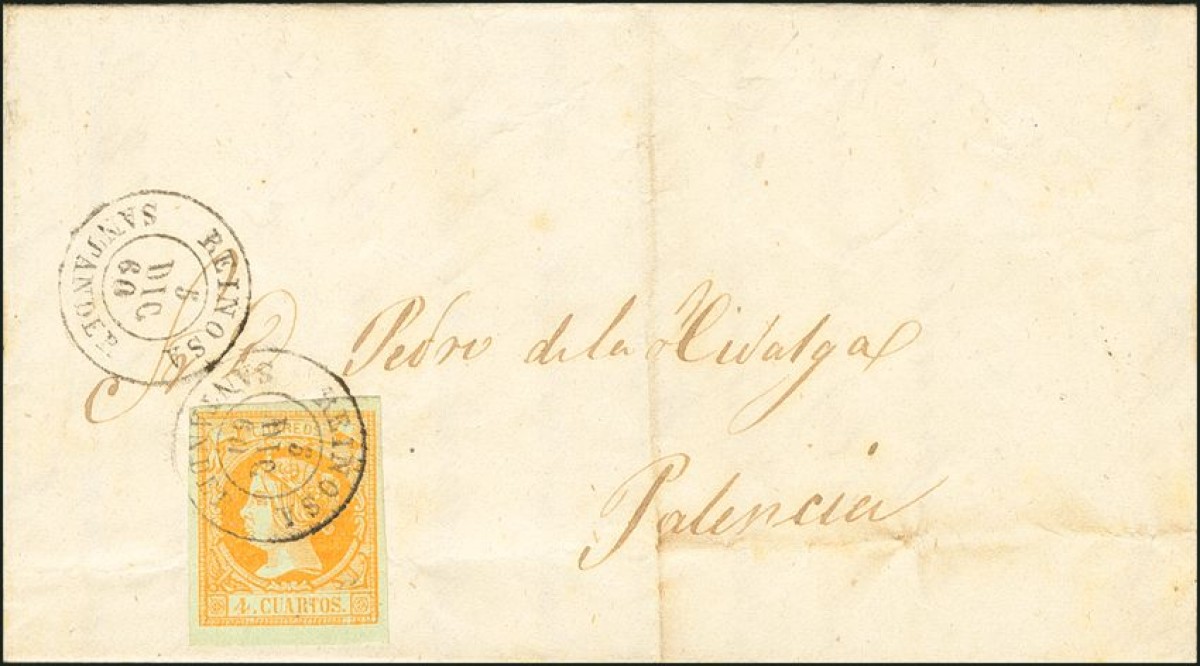 REINOSA
SANTANDER
5
DIC
60
Pedro de la Hidalga
Palencia
REINOSA
SANTANDER
5
DIC
60
CORREOS
4. CUARTOS.